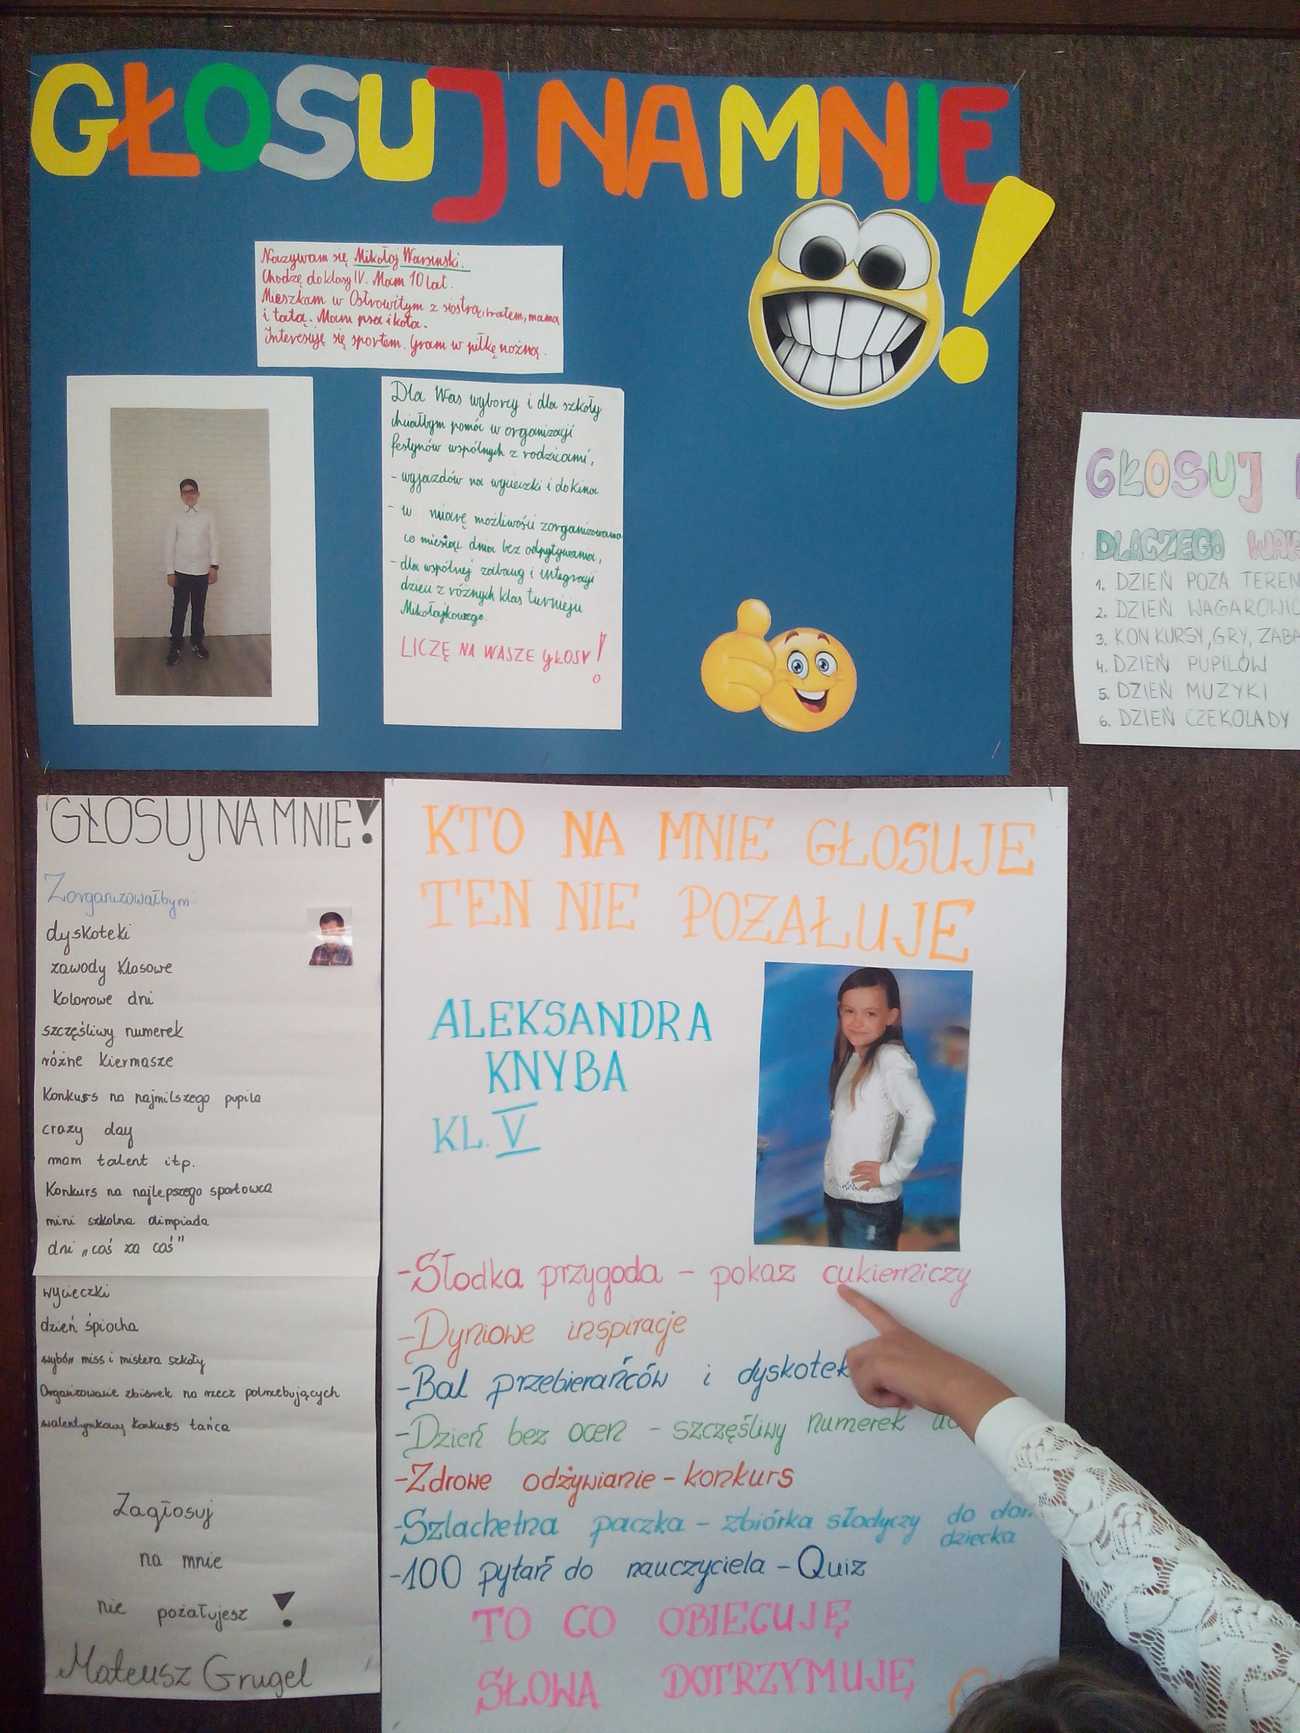 GŁOSUJ NA MNIE!
Nazywam się Mikołaj Warsinski.
Chodzę do klasy IV. Mam 10 lat.
Mieszkam w Ostrowitym z siostrą, bratem, mamą
i tatą. Mam psa i kota.
Interesuję się sportem. Gram w piłkę nożną.
Dla Was wyborcy i dla szkoły
chciałbym pomóc w organizacji
festynów wspólnych z rodzicami,
- wyjazdów na wycieczki i do kina
- w miarę możliwości zorganizowania
co miesiąc dnia bez odpytywania,
- dla wspólnej zabawy i integracji
dzieci z różnych klas turnieju
Mikołajkowego.
LICZĘ NA WASZE GŁOSY!
GŁOSUJ
DLACZEGO
1. DZIEŃ POZA TEREN
2. DZIEŃ WAGAROWIC
3. KONKURSY, GRY, ZABA
4. DZIEŃ PUPILÓW
5. DZIEŃ MUZYKI
6. DZIEŃ CZEKOLADY
GŁOSUJ NA MNIE!
Zorganizowałbym:
dyskoteki
zawody klasowe
kolorowe dni
szczęśliwy numerek
różne kiermasze
konkurs na najmilszego pupila
crazy day
mam talent itp.
konkurs na najlepszego sportowca
mini szkolna olimpiada
dni „coś za coś"
wycieczki
dzień śpiocha
wybór miss i mistera szkoły
Organizowanie zbiórek na rzecz potrzebujących
walentynkowy konkurs tańca
Zagłosuj
na mnie
nie pożałujesz!
Mateusz Grugel
KTO NA MNIE GŁOSUJE
TEN NIE POŻAŁUJE
ALEKSANDRA
KNYBA
KL. V
-Słodka przygoda - pokaz cukierniczy
-Dyniowe inspiracje
-Bal przebierańców i dyskotek
-Dzień bez ocen - szczęśliwy numerek
-Zdrowe odżywianie - konkurs
-Szlachetna paczka - zbiórka słodyczy do dom
dziecka
-100 pytań do nauczyciela - Quiz
TO CO OBIECUJĘ
SŁOWA DOTRZYMUJĘ